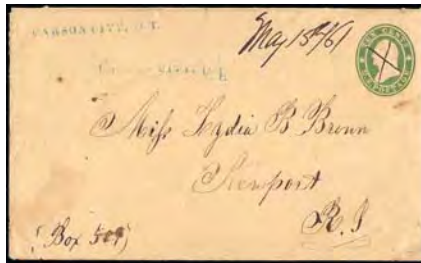 CARSON CITY, U.T.
May 15th/61
TEN CENTS
U.S. POSTAGE
CITY, U.T.
Miss Lydia B Brown
Newport
R.I
(Box 509)